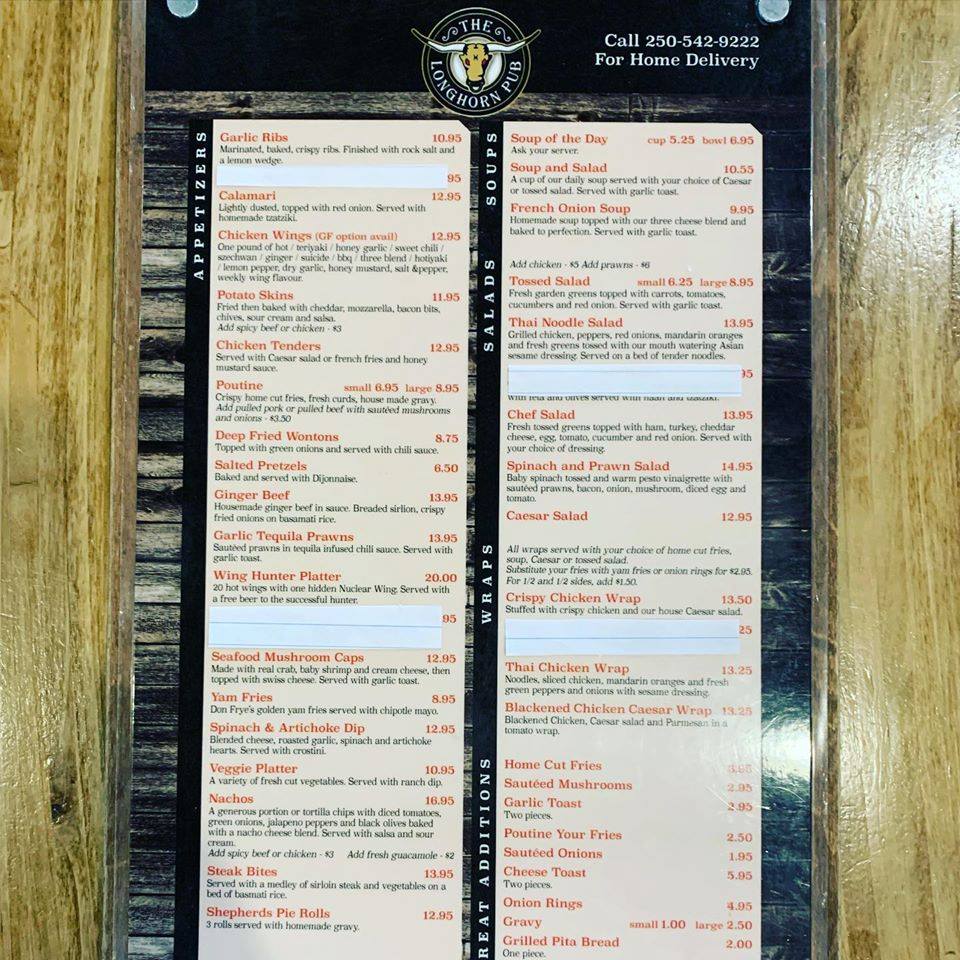 THE
LONGHORN PUB
Call 250-542-9222
For Home Delivery
APPETIZERS
Garlic Ribs 10.95
Marinated, baked, crispy ribs. Finished with rock salt and
a lemon wedge.
95
Calamari 12.95
Lightly dusted, topped with red onion. Served with
homemade tzatziki.
Chicken Wings (GF option avail) 12.95
One pound of hot / teriyaki / honey garlic / sweet chili /
szechwan / ginger / suicide / bbq / three blend / hotiyaki
/ lemon pepper, dry garlic, honey mustard, salt &pepper,
weekly wing flavour.
Potato Skins 11.95
Fried then baked with cheddar, mozzarella, bacon bits,
chives, sour cream and salsa.
Add spicy beef or chicken - $3
Chicken Tenders 12.95
Served with Caesar salad or french fries and honey
mustard sauce.
Poutine small 6.95 large 8.95
Crispy home cut fries, fresh curds, house made gravy.
Add pulled pork or pulled beef with sautéed mushrooms
and onions - $3.50
Deep Fried Wontons 8.75
Topped with green onions and served with chili sauce.
Salted Pretzels 6.50
Baked and served with Dijonnaise.
Ginger Beef 13.95
Housemade ginger beef in sauce. Breaded sirlion, crispy
fried onions on basamati rice.
Garlic Tequila Prawns 13.95
Sautéed prawns in tequila infused chili sauce. Served with
garlic toast.
Wing Hunter Platter 20.00
20 hot wings with one hidden Nuclear Wing. Served with
a free beer to the successful hunter.
95
Seafood Mushroom Caps 12.95
Made with real crab, baby shrimp and cream cheese, then
topped with swiss cheese. Served with garlic toast.
Yam Fries 8.95
Don Frye's golden yam fries served with chipotle mayo.
Spinach & Artichoke Dip 12.95
Blended cheese, roasted garlic, spinach and artichoke
hearts. Served with crostini.
Veggie Platter 10.95
A variety of fresh cut vegetables. Served with ranch dip.
Nachos 16.95
A generous portion or tortilla chips with diced tomatoes,
green onions, jalapeno peppers and black olives baked
with a nacho cheese blend. Served with salsa and sour
cream.
Add spicy beef or chicken - $3 Add fresh guacamole - $2
Steak Bites 13.95
Served with a medley of sirloin steak and vegetables on a
bed of basmati rice.
Shepherds Pie Rolls 12.95
3 rolls served with homemade gravy.
SOUPS
Soup of the Day cup 5.25 bowl 6.95
Ask your server.
Soup and Salad 10.55
A cup of our daily soup served with your choice of Caesar
or tossed salad. Served with garlic toast.
French Onion Soup 9.95
Homemade soup topped with our three cheese blend and
baked to perfection. Served with garlic toast.
SALADS
Add chicken - $5 Add prawns - $6
Tossed Salad small 6.25 large 8.95
Fresh garden greens topped with carrots, tomatoes,
cucumbers and red onion. Served with garlic toast.
Thai Noodle Salad 13.95
Grilled chicken, peppers, red onions, mandarin oranges
and fresh greens tossed with our mouth watering Asian
sesame dressing. Served on a bed of tender noodles.
95
with feta and olives served with naan and tzatziki.
Chef Salad 13.95
Fresh tossed greens topped with ham, turkey, cheddar
cheese, egg, tomato, cucumber and red onion. Served with
your choice of dressing.
Spinach and Prawn Salad 14.95
Baby spinach tossed and warm pesto vinaigrette with
sautéed prawns, bacon, onion, mushroom, diced egg and
tomato.
Caesar Salad 12.95
WRAPS
All wraps served with your choice of home cut fries,
soup, Caesar or tossed salad.
Substitute your fries with yam fries or onion rings for $2.95.
For 1/2 and 1/2 sides, add $1.50.
Crispy Chicken Wrap 13.50
Stuffed with crispy chicken and our house Caesar salad.
25
Thai Chicken Wrap 13.25
Noodles, sliced chicken, mandarin oranges and fresh
green peppers and onions with sesame dressing.
Blackened Chicken Caesar Wrap 13.25
Blackened Chicken, Caesar salad and Parmesan in a
tomato wrap.
REAT ADDITIONS
Home Cut Fries
Sautéed Mushrooms 2.95
Garlic Toast 2.95
Two pieces.
Poutine Your Fries 2.50
Sautéed Onions 1.95
Cheese Toast 5.95
Two pieces.
Onion Rings 4.95
Gravy small 1.00 large 2.50
Grilled Pita Bread 2.00
One piece.